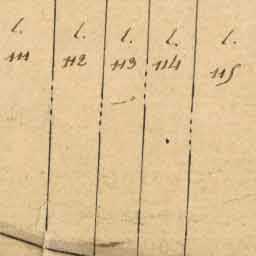 l. l. l. l. l.
111 112 113 114 115